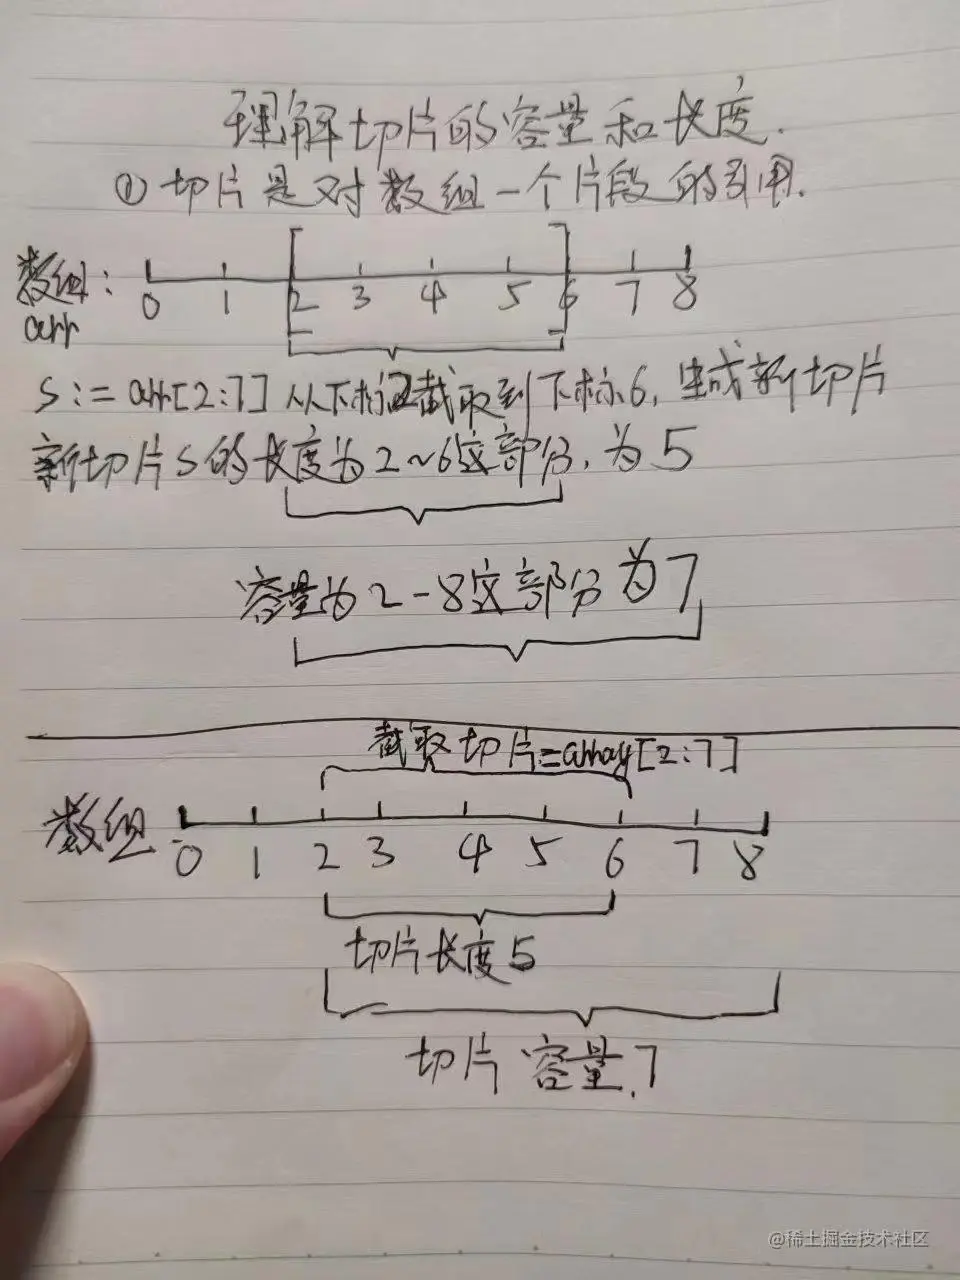 理解切片的容量和长度.
① 切片是对数组一个片段的引用.
数组:
arr
0 1 2 3 4 5 6 7 8
s:= arr[2:7] 从下标2截取到下标6,生成新切片
新切片s的长度为2~6这部分,为5
容量为2-8这部分为7
截取切片=array[2:7]
数组
0 1 2 3 4 5 6 7 8
切片长度5
切片容量.7
@稀土掘金技术社区